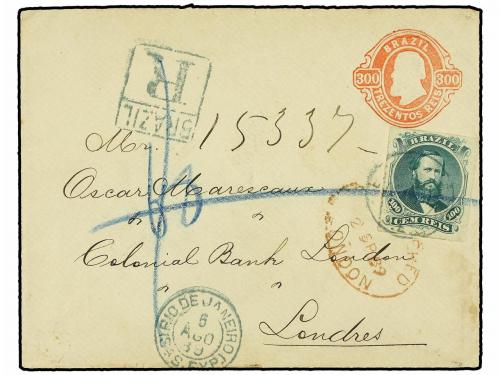 BRAZIL
300 300
TREZENTOS REIS
R
BRAZIL
15337
Mr.
BRAZIL
100 100
CEM REIS
Oscar Marescaux
Colonial Bank London
LONDON
RIO DE JANEIRO
6
AGO
89
Londres